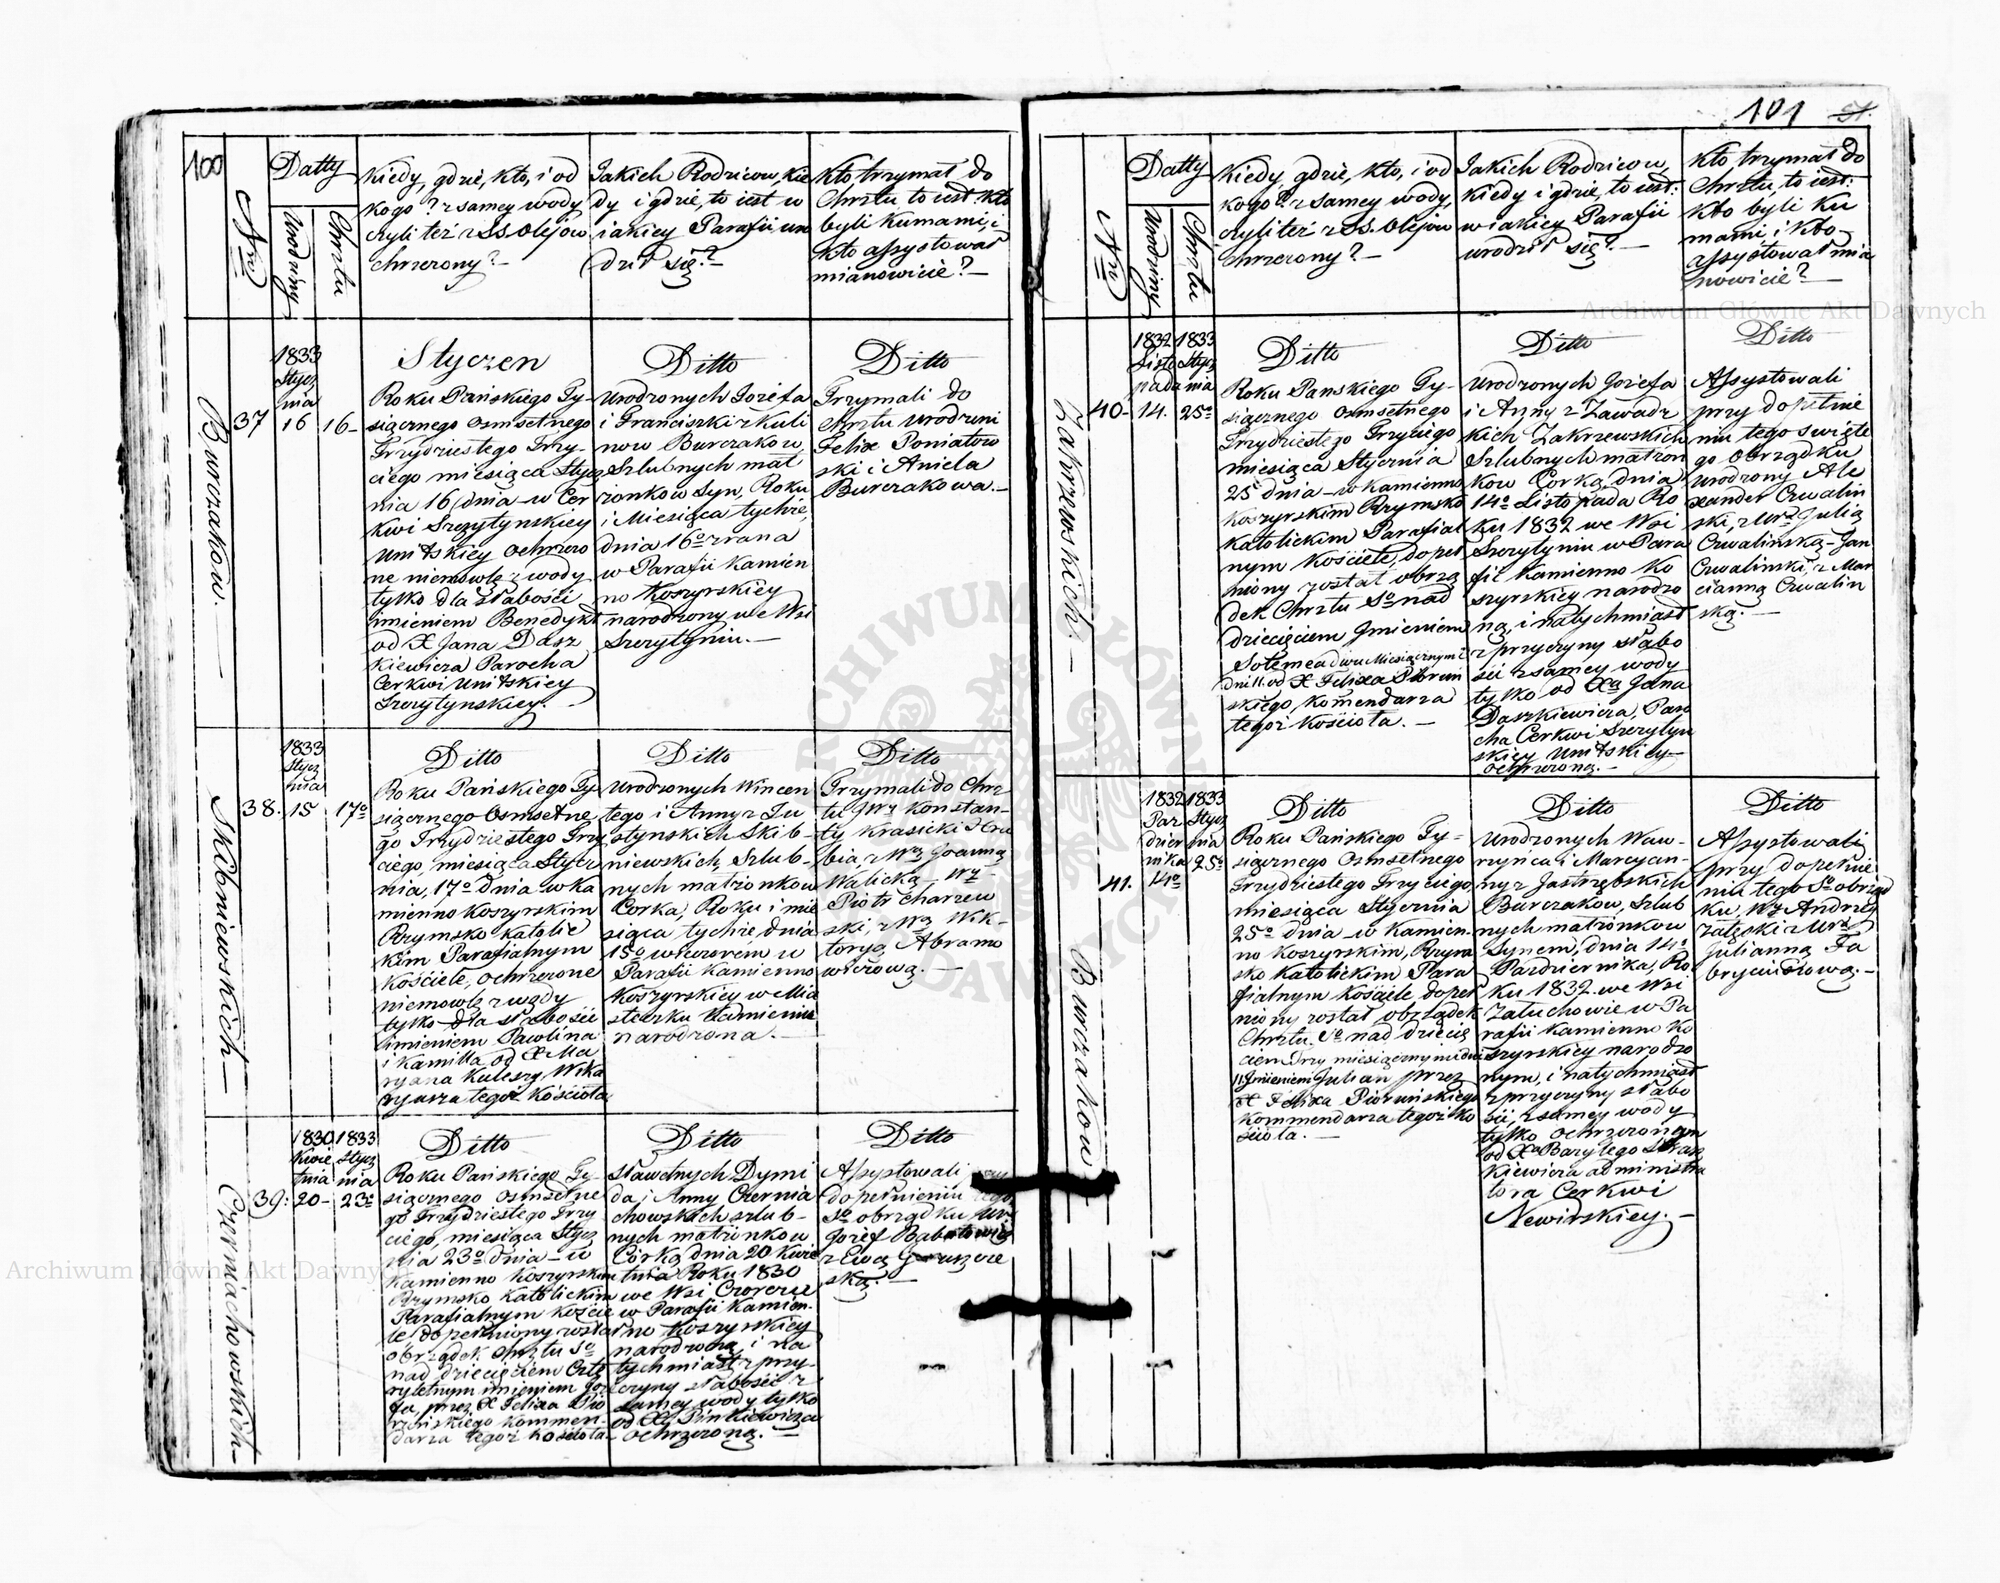 100
Datty
Nro
Urodziny
Chrztu
Kiedy, gdzie, kto, i od
kogo? z samey wody
czyli też z SS. Olejów
chrzczony? –
Jakich Rodziców, kie
dy i gdzie, to iest w
iakiey Parafii uro
dził się? –
Kto trzymał do
Chrztu, to iest: kto
byli kumami, i
kto assystował
mianowicie? –
Burczaków. –
37
1833
Stycz
nia
16
16 –
Styczen
Roku Pańskiego Ty-
siącznego osmsetnego
Trzydziestego Trzy-
ciego miesiąca Stycz
nia 16 dnia – w Cer
kwi Szczytynskiey
Unitskiey ochrzczo
ne niemowle z wody
tylko dla słabości
imieniem Benedykt
od X Jana Dasz
kiewicza Parocha
Cerkwi Unitskiey
Szczytynskiey. –
Ditto
Urodzonych Jozefa
i Franciszki z Kuli
now Burczakow
Szlubnych mał
żonkow Syn, Roku
i Miesiąca tychże,
dnia 16o zrana
w Parafii Kamien
no Koszyrskiey
narodzony we Wsi
Szczytyniu. –
Ditto
Trzymali do
Chrztu Urodzeni
Felix Poniatow
ski i Aniela
Burczakowa. –
Skibniewskich –
38.
1833
Stycz
nia
15
17o
Ditto
Roku Pańskiego Ty
siącznego Osmsetne
go Trzydziestego Trzy
ciego, miesiąca Stycz
nia, 17o dnia w Ka
mienno Koszyrskim
Rzymsko Katolic
kim Parafialnym
Kościele, ochrzczone
niemowle z wody
tylko dla słabości
imieniem Pawlina
i Kamilla, od X Ma
ryana Kuleszy, Wika
ryusza tegoż Kościoła
Ditto
Urodzonych Wincen
tego i Anny z Ju
stynskich Skib-
niewskich, Szlub-
nych małżonkow
Corka, Roku i mie
siąca tychże, dnia
15o wieczorem w
Parafii Kamienno
Koszyrskiey w Mia
steczku Kamieniu
narodzona. –
Ditto
Trzymali do Chrz
tu JWy Konstan-
ty Krasicki Hra
bia z Wą Joanną
Walicką – Wy
Piotr Charzew
ski, z Wą Wik-
toryą Abramo
wiczową. –
Czerniachowskich –
39.
1830
Kwie
tnia
20 –
1833
Stycz
nia
23o
Ditto
Roku Pańskiego Ty-
siącznego osmsetne
go Trzydziestego Trzy
ciego, miesiąca Stycz
nia 23o dnia – w
Kamienno Koszyrskim
Rzymsko Katolickim
Parafialnym Koście
le, dopełniony został
obrządek Chrztu So
nad dziecięciem Czte
ryletnym imieniem Joze
fa, przez X Felixa Pio
runskiego Kommen-
darza tegoż Kościoła –
Ditto
Sławetnych Dymi
da i Anny Czernia
chowskich szlub-
nych małżonkow
Córką, dnia 20 Kwie
tnia Roku 1830
we Wsi Czerczu
w Parafii Kamien-
no Koszyrskiey
narodzoną, i na
tychmiast z przy-
czyny słabości z
samey wody tylko
od Xa Pinkiewicza
ochrzczoną. –
Ditto
Assystowali
dopełnieniu
So obrządku
Jozef
z Ewą
ską. –
101
51.
Datty
Nro
Urodziny
Chrztu
Kiedy, gdzie, kto, i od
kogo? z samey wody,
czyli też z SS. Olejow
chrzczony? –
Jakich Rodziców,
kiedy i gdzie, to iest:
w iakiey Parafii
urodził się? –
Kto trzymał do
Chrztu, to iest:
kto byli ku
mami, i kto
assystował mia
nowicie? –
Zakrzewskich. –
40 –
1832
Listo
pada
14.
1833
Stycz
nia
25o
Ditto
Roku Panskiego Ty-
siącznego osmsetnego
Trzydziestego Trzyciego
miesiąca Stycznia
25 dnia – w Kamienno
Koszyrskim Rzymsko
Katolickim Parafial
nym Kościele, dopeł
niony został obrzą
dek Chrztu So nad
dziecięciem Jmieniem
dwu Miesięcznym i
dni 11. od X Felixa Piorun
skiego, kommendarza
tegoż Kościoła. –
Ditto
Urodzonych Jozefa
i Anny z Zawadz
kich Zakrzewskich
Szlubnych małżon
kow Corką, dnia
14o Listopada Ro
ku 1832 we Wsi
Szczytyniu w Para
fii Kamienno Ko
szyrskiey narodzo
ną, i natychmiast
z przyczyny słabo
ści z samey wody
tylko od Xa Jana
Daszkiewicza, Paro
cha Cerkwi Szczytyn
skiey Unitskiey –
ochrzczoną. –
Ditto
Assystowali
przy dopełnie
niu tego święte
go obrządku
Urodzony Ale
xander Czwalin
ski, z Urą Julią
Czwalińską – Jan
Czwaliński, z Mar
cianną Czwalin
ską. –
Burczakow –
41.
1832
Paz
dzier
nika
14o
1833
Stycz
nia
25o
Ditto
Roku Pańskiego Ty-
siącznego Osmsetnego
Trzydziestego Trzyciego,
miesiąca Stycznia
25o dnia w Kamien-
no Koszyrskim, Rzym
sko Katolickim Para
fialnym Kościele dopeł
niony został obrządek
Chrztu So nad dziecię
ciem Trzy miesięcznym i dni
11. Jmieniem Julian przez
X Felixa Piorunskiego
Kommendarza tegoż Ko
ścioła. –
Ditto
Urodzonych Waw-
rzyńca i Marcyan-
ny z Jastrzębskich
Burczakow, Szlub
nych małżonkow
Synem, dnia 14o
Pazdziernika, Ro
ku 1832. we Wsi
Załuchowie w Pa
rafii Kamienno Ko
szyrskiey narodzo
nym, i natychmiast
z przyczyny słabo
ści, z samey wody
tylko ochrzczonym
od Xa Bazylego
kiewicza administra
tora Cerkwi
Newirskiey. –
Ditto
Assystowali
przy dopełnie
niu tego So obrząd
ku, Wy Andrzey
Załęski z Urą
Julianną Fa
brycuszową. –
Archiwum Główne Akt Dawnych
Archiwum Główne Akt Dawnych
ARCHIWUM GŁÓWNE
AKT DAWNYCH